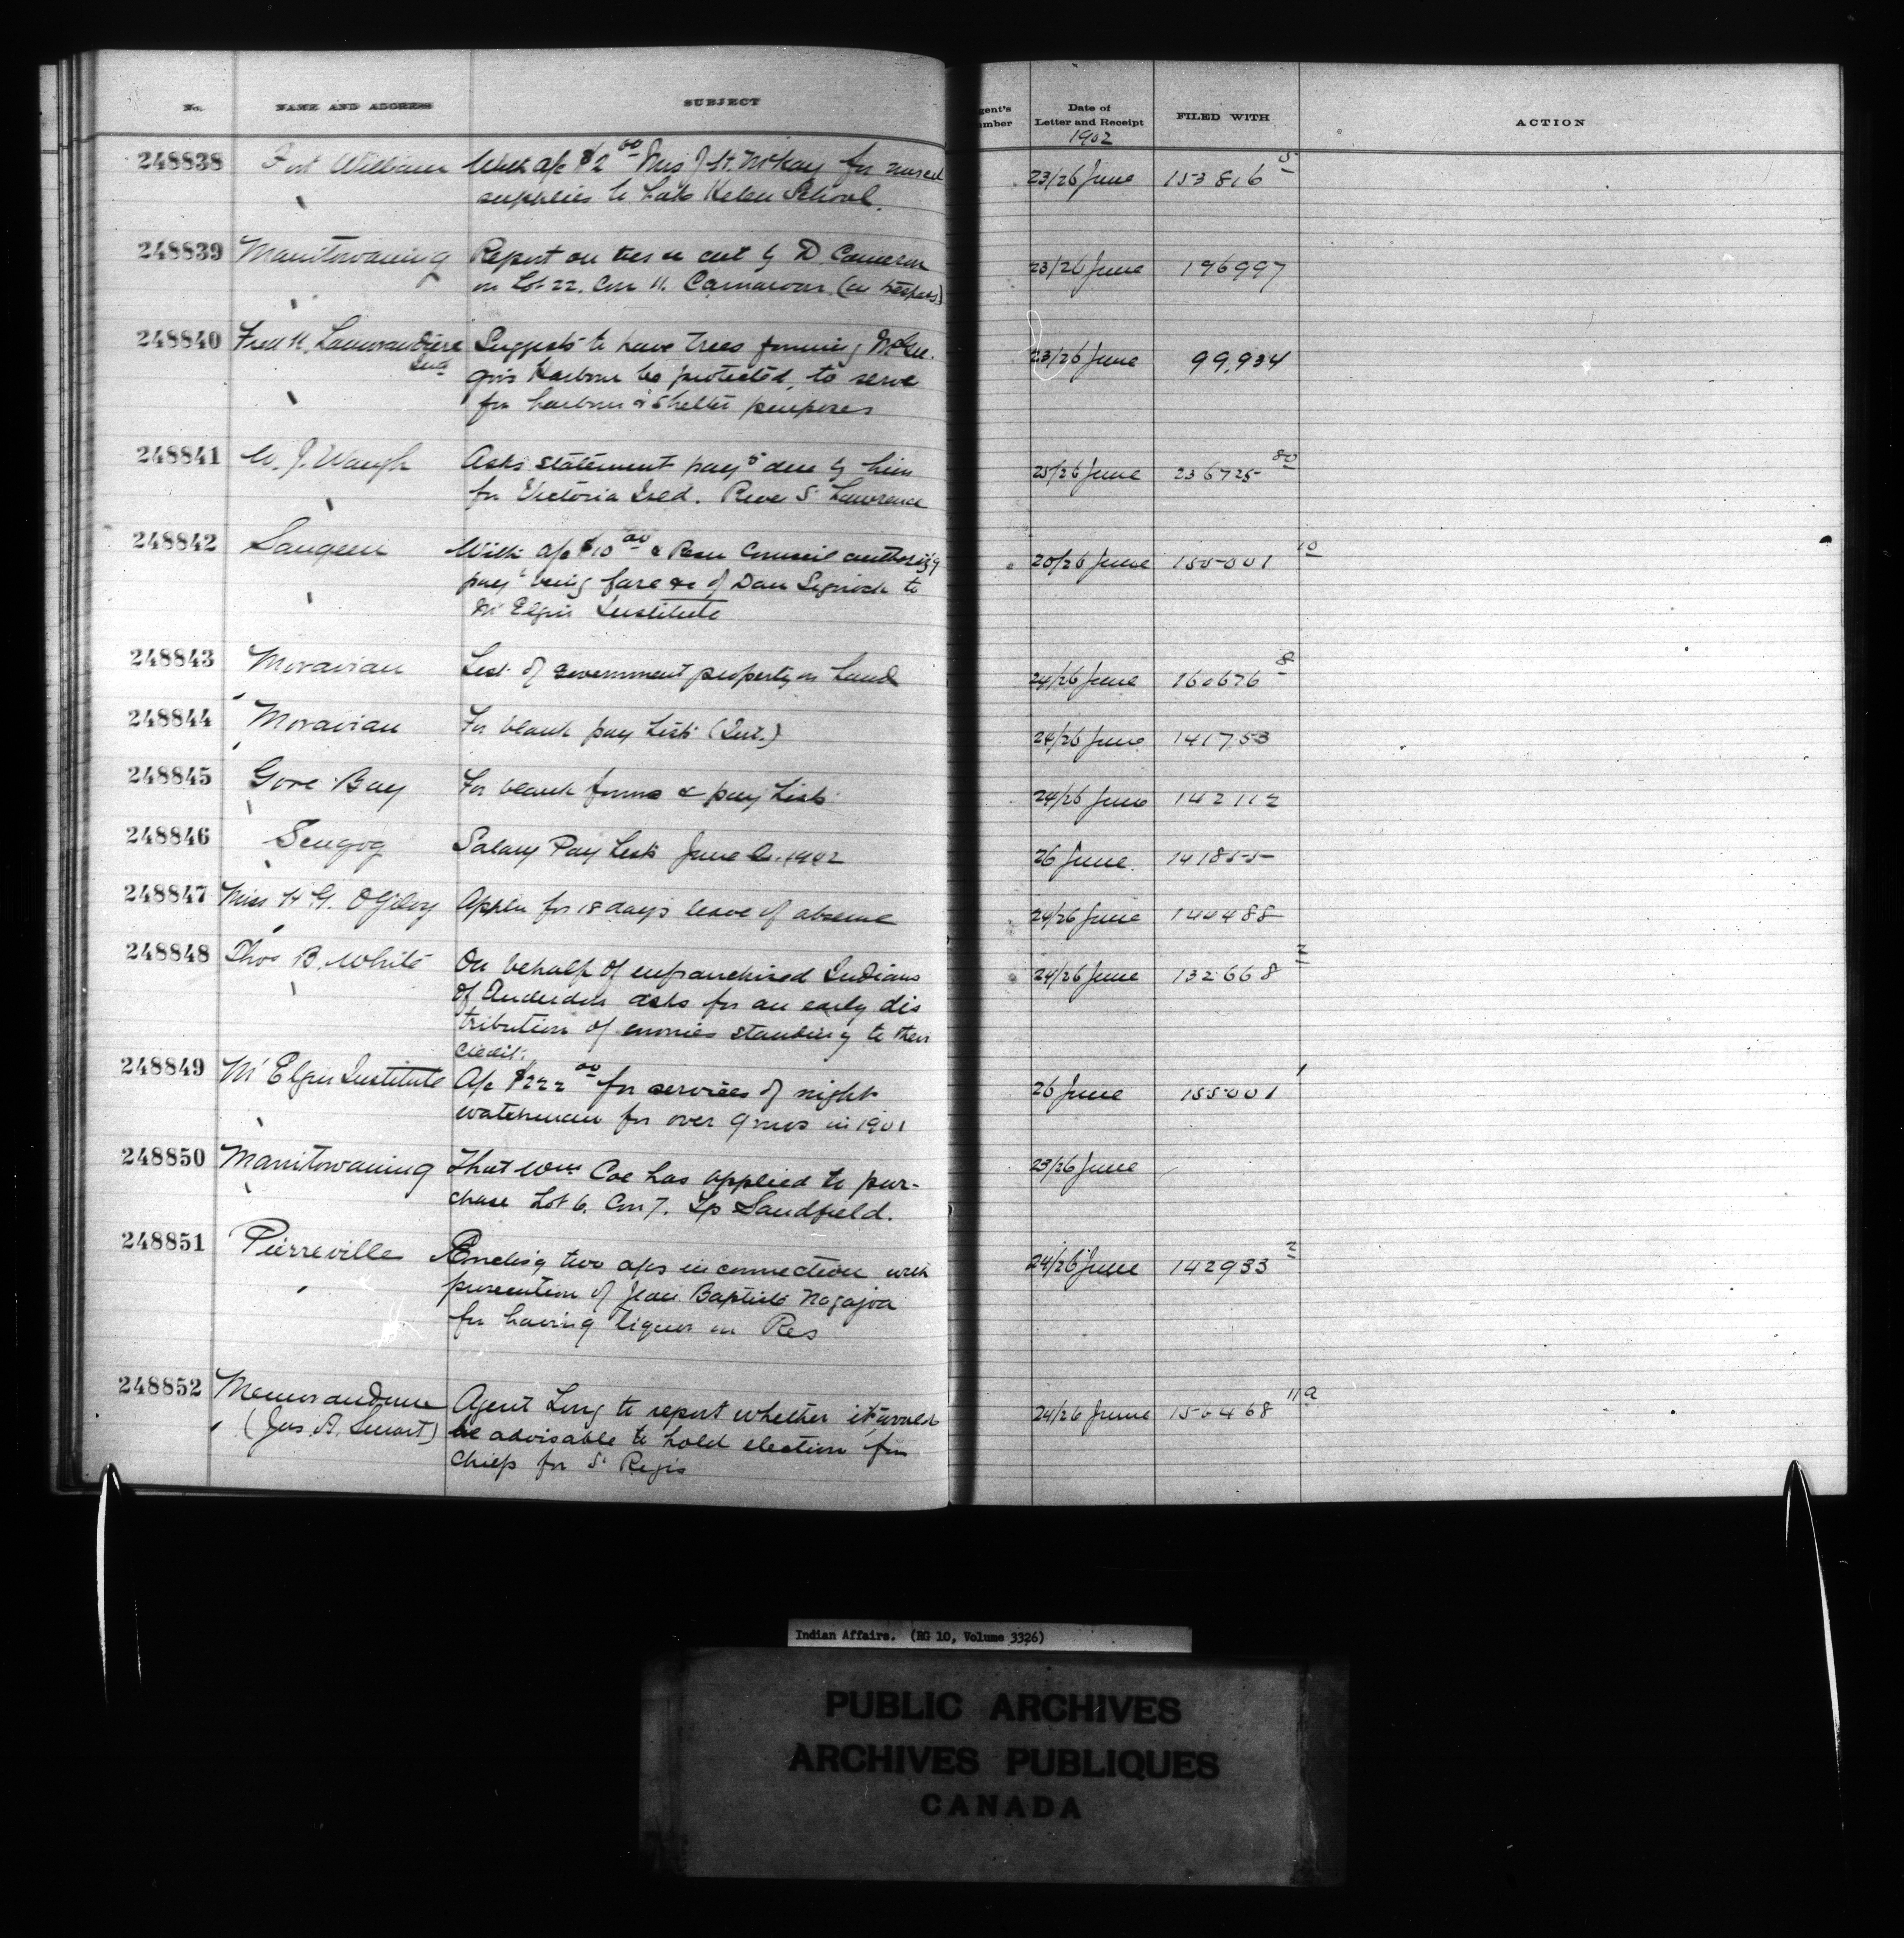 No. NAME AND ADDRESS SUBJECT Agent's Number Date of Letter and Receipt FILED WITH ACTION
1902
248838 Fort William With a/c $2 00 Mrs J. St. McKay for
supplies to Lake Helen School. 23/26 June 153816 5
248839 Manitowaning Report on ties cut by D. Cameron
on Lot 22. Con 11. Carnarvon (in trespass) 23/26 June 196997
248840 Fred H. Lamorandiere Suggests to have trees forming McGre-
gor's Harbour be protected, to serve
for harbour & shelter purposes 23/26 June 99,934
248841 W. J. Waugh Asks statement payts due by him
for Victoria Isld. River St Lawrence 25/26 June 236725 80
248842 Saugeen With a/c $10 00 & Resn Council authorizg
payt being fare &c of Dan to
Mt Elgin Institute 20/26 June 155001 10
248843 Moravian List of government property on hand 24/26 June 160676 8
248844 Moravian For blank pay Lists (Int.) 24/26 June 141753
248845 Gore Bay For blank forms & pay Lists 24/26 June 142112
248846 Scugog Salary Pay List June Qr. 1902 26 June 141855
248847 Miss H. G. Ogilvy Appln for 18 days leave of absence 24/26 June 144488
248848 Thos B. White On behalf of enfranchised Indians
of Anderdon asks for an early dis
tribution of monies standing to their
credit. 24/26 June 132668 2
248849 Mt Elgin Institute A/c $222 00 for services of night
watchman for over 9 mos in 1901 26 June 155001 1
248850 Manitowaning That Wm Coe has applied to pur-
chase Lot 6. Con 7. Tp Sandfield. 23/26 June
248851 Pierreville two a/cs in connection with
prosecution of Jean Baptiste Nagajoa
for having liquor on Res 24/26 June 142933 2
248852 Memorandum Agent Long to report whether it would
(Jas. A. Smart) be advisable to hold election for
chiefs for St Regis 24/26 June 156468 11a
Indian Affairs. (RG 10, Volume 3326)
PUBLIC ARCHIVES
ARCHIVES PUBLIQUES
CANADA